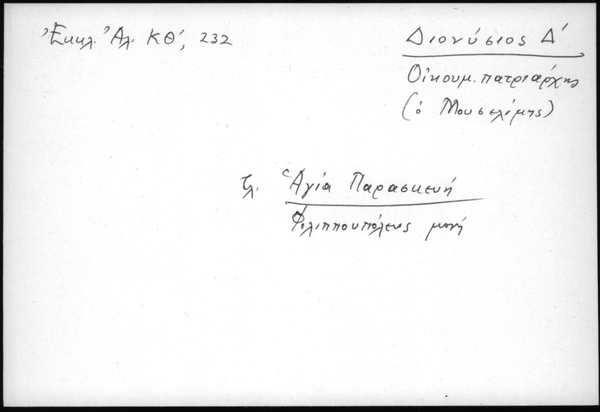 Ἐκκλ. Ἀλ. ΚΘ΄, 232
Διονύσιος Δ΄
Οἰκουμ. πατριάρχης
(ὁ Μουσελίμης)
βλ. Ἁγία Παρασκευή
Φιλιππουπόλεως μονή